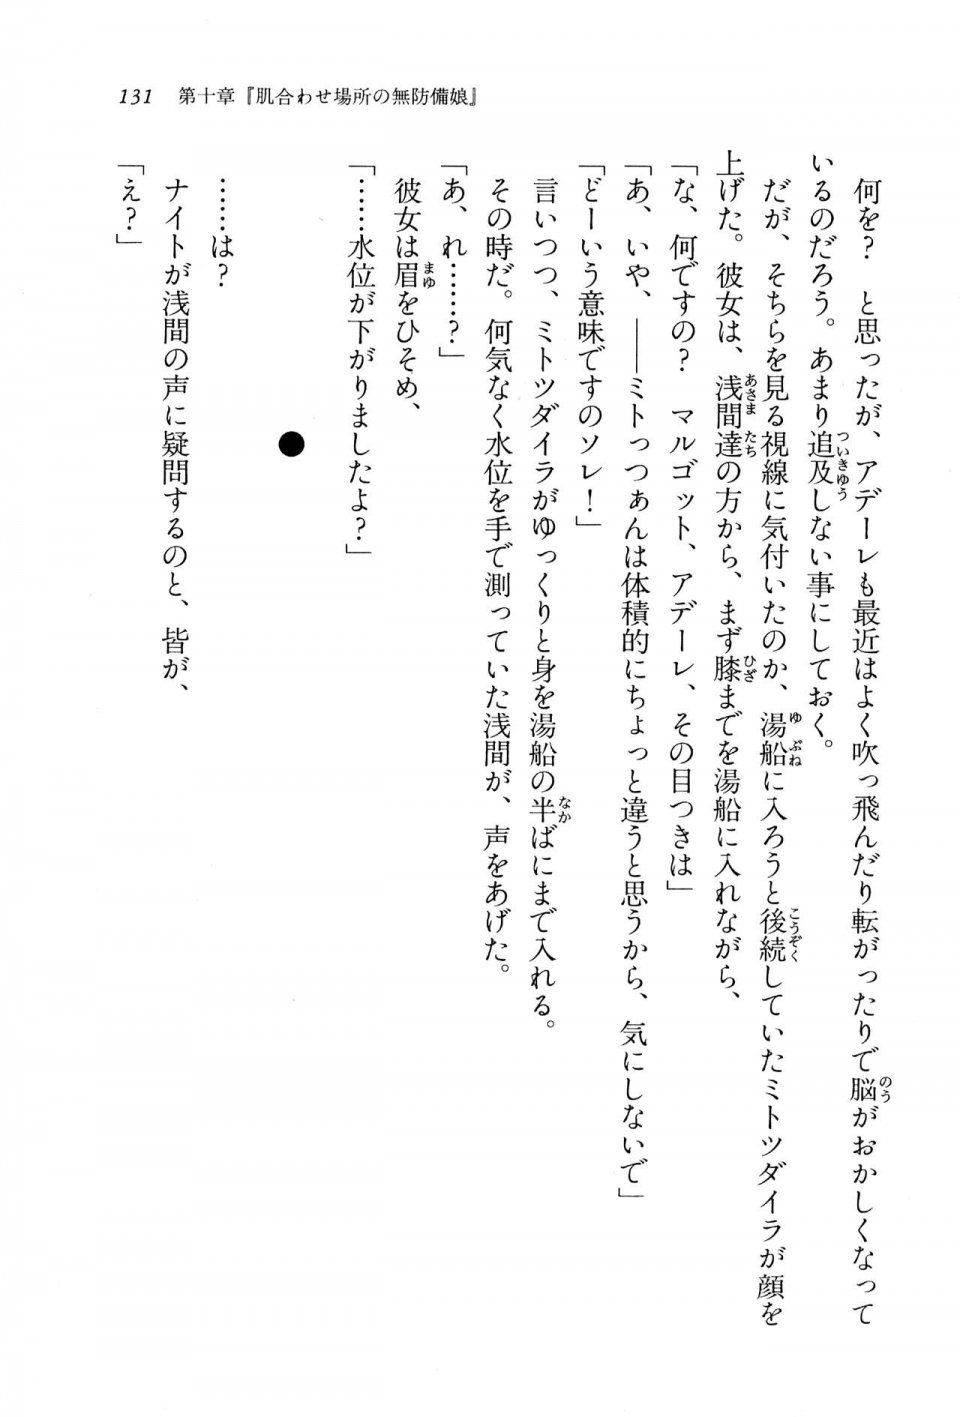 131 第十章『肌合わせ場所の無防備娘』
何を？　と思ったが、アデーレも最近はよく吹っ飛んだり転がったりで脳がおかしくなって
いるのだろう。あまり追及しない事にしておく。
だが、そちらを見る視線に気付いたのか、湯船に入ろうと後続していたミトツダイラが顔を
上げた。彼女は、浅間達の方から、まず膝までを湯船に入れながら、
「な、何ですの？　マルゴット、アデーレ、その目つきは」
「あ、いや、――ミトっつぁんは体積的にちょっと違うと思うから、気にしないで」
「どーいう意味ですのソレ！」
言いつつ、ミトツダイラがゆっくりと身を湯船の半ばにまで入れる。
その時だ。何気なく水位を手で測っていた浅間が、声をあげた。
「あ、れ……？」
彼女は眉をひそめ、
「……水位が下がりましたよ？」
●
……は？
ナイトが浅間の声に疑問するのと、皆が、
「え？」